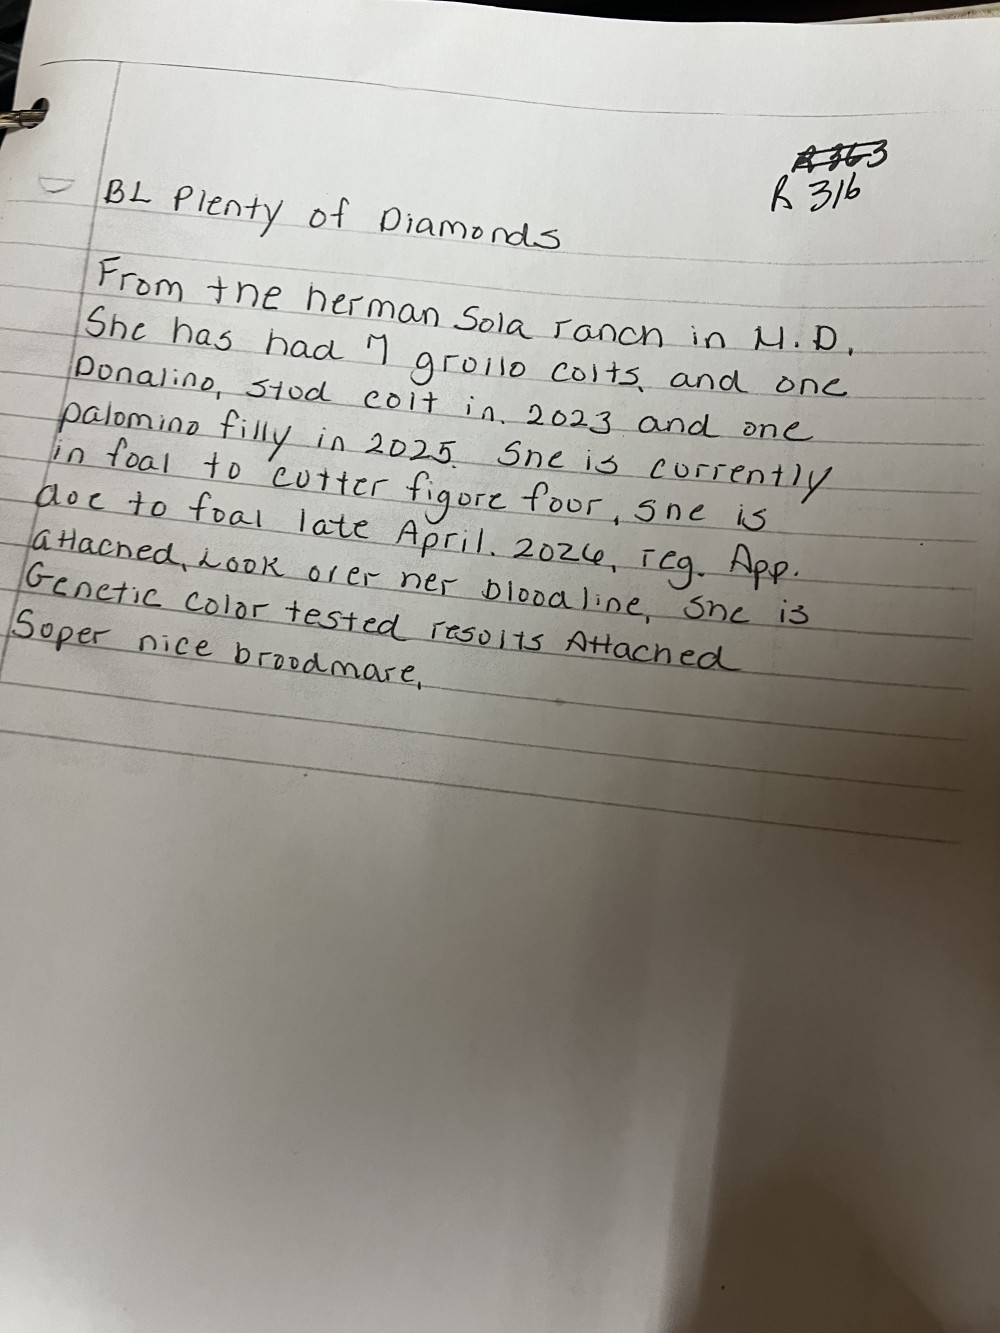 R 363
R 316
BL Plenty of Diamonds
From the herman Sola ranch in N.D.
She has had 7 grollo colts, and one
Donalino, stud colt in. 2023 and one
palomino filly in 2025. She is currently
in foal to cutter figure four, she is
due to foal late April. 2026, reg. App.
attached, Look over her bloodline, she is
Genetic color tested results Attached
Super nice broodmare,